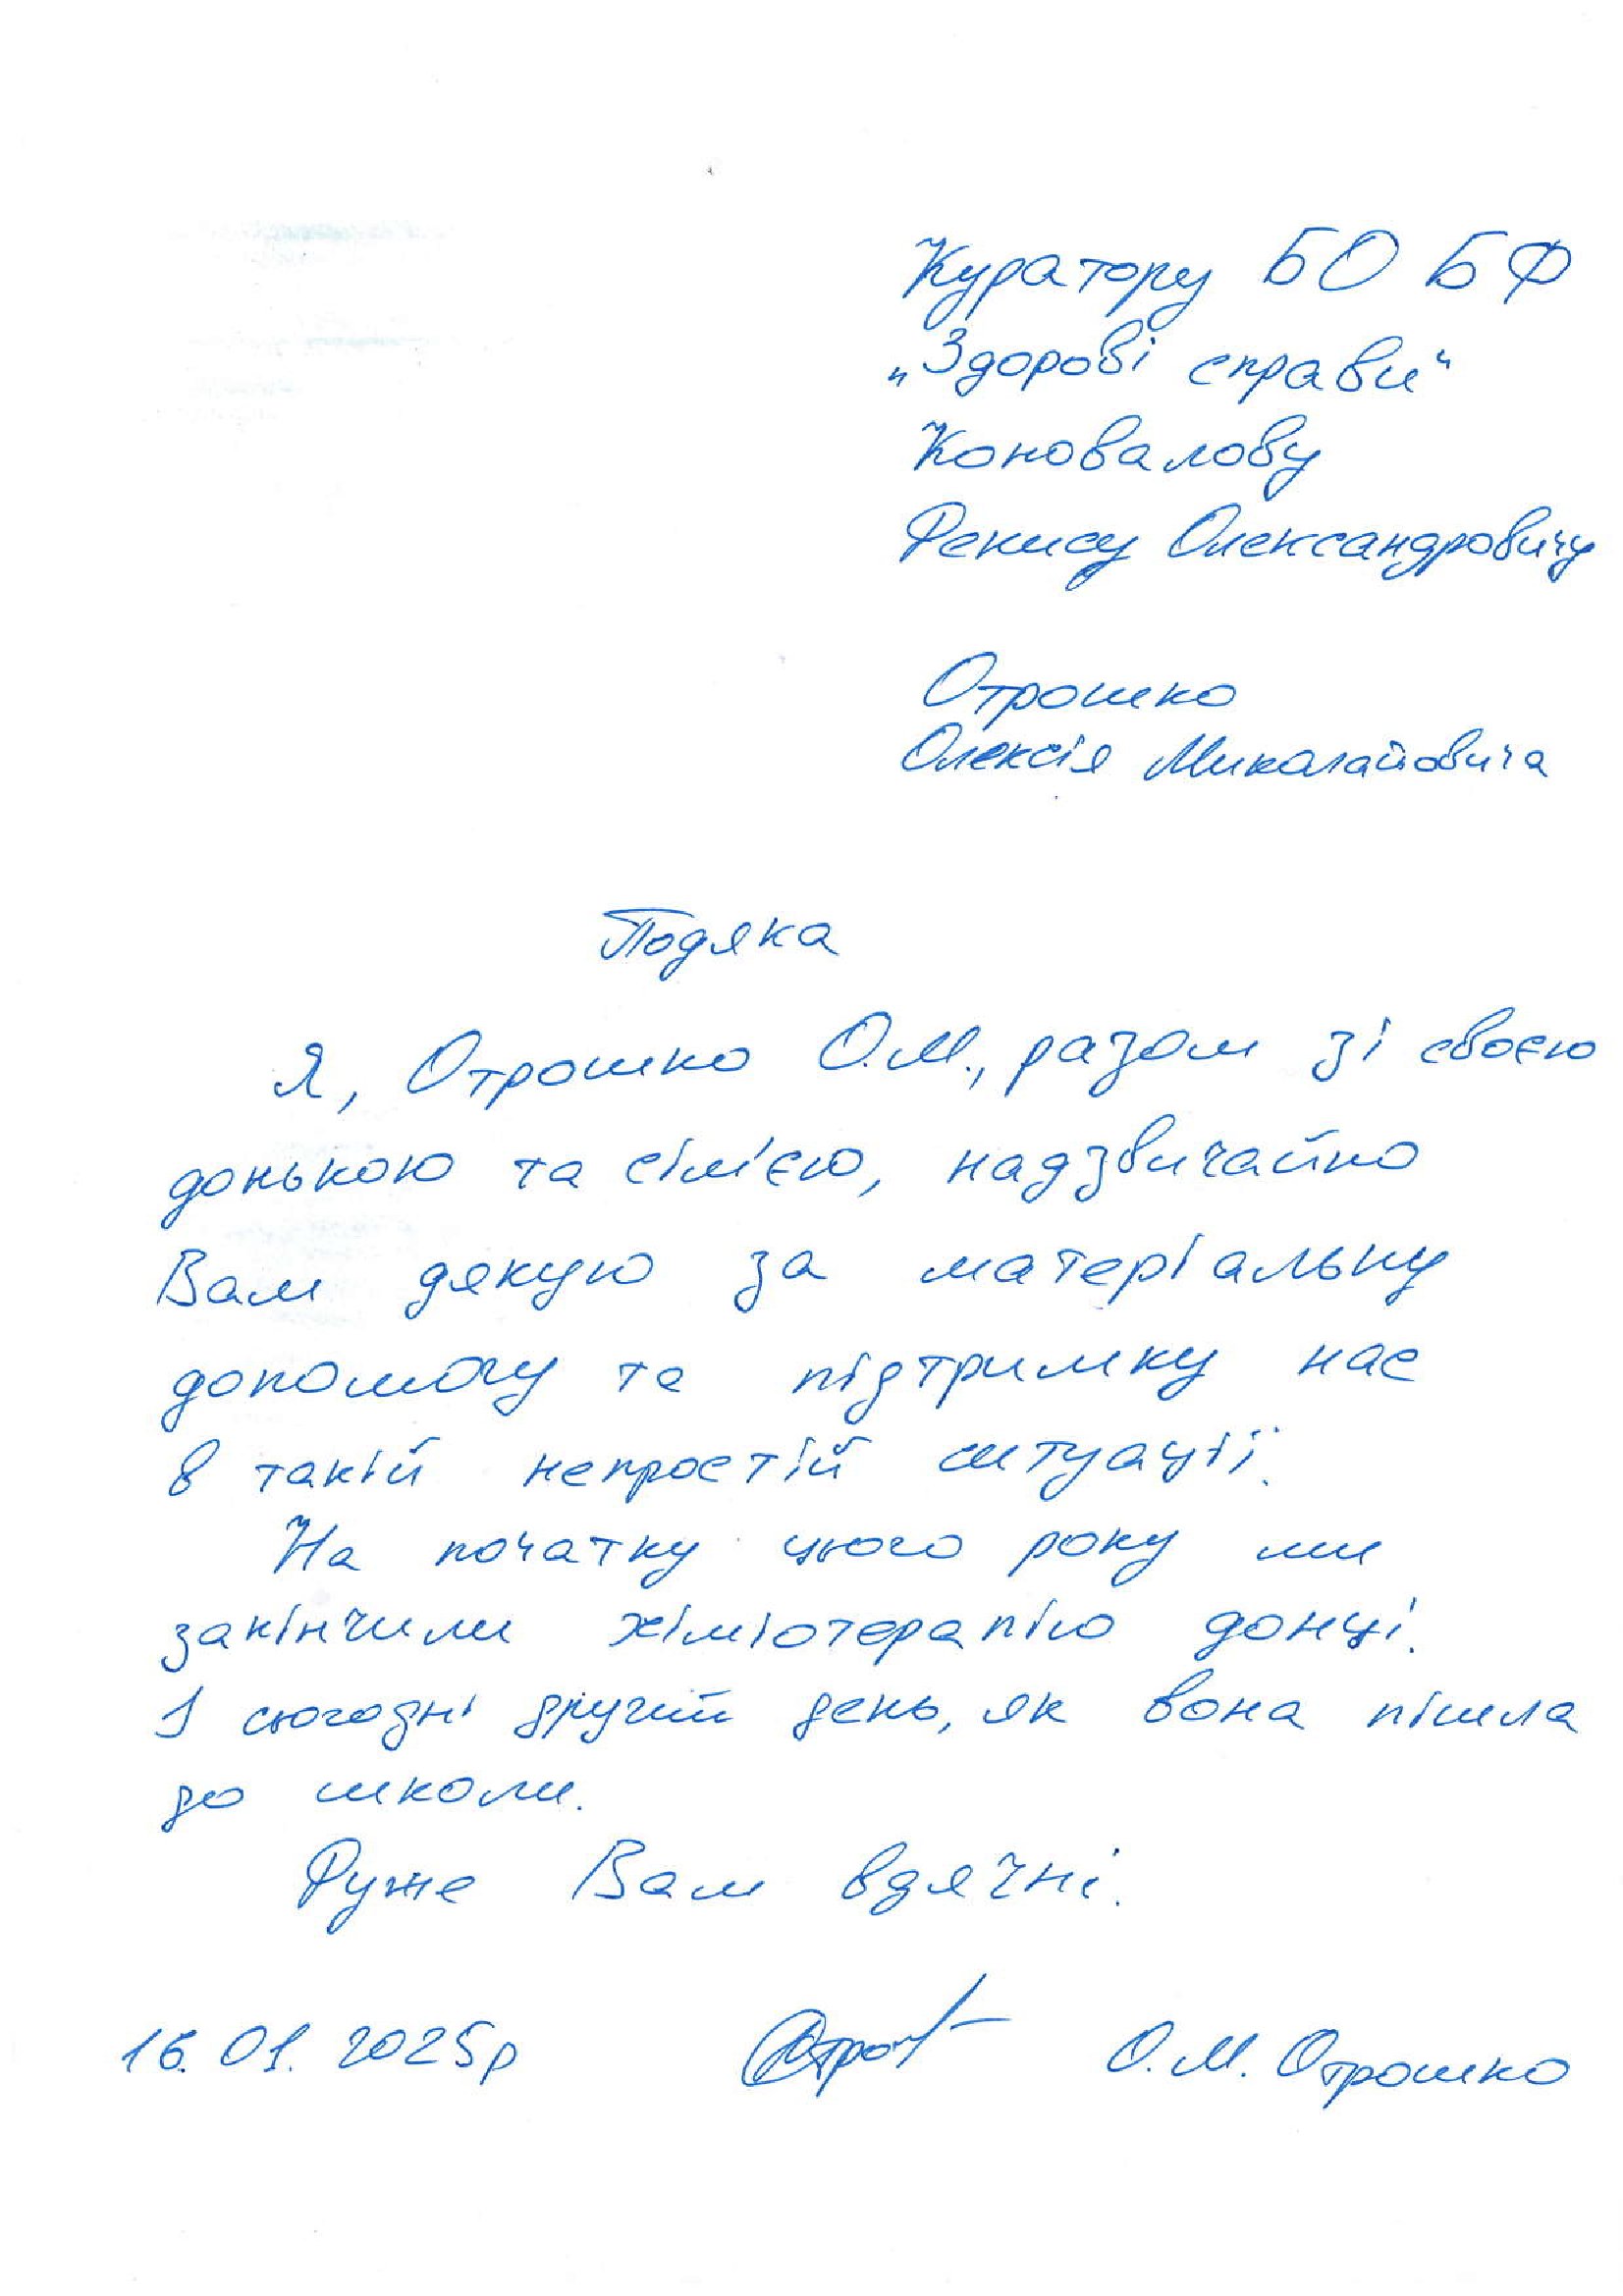 Куратору БО БФ
„Здорові справи“
Коновалову
Денису Олександровичу
Отрошко
Олексія Миколайовича
Подяка
Я, Отрошко О.М., разом зі своєю
донькою та сім'єю, надзвичайно
Вам дякую за матеріальну
допомогу та підтримку нас
в такій непростій ситуації.
На початку цього року ми
закінчили хіміотерапію донці.
І сьогодні другий день, як вона пішла
до школи.
Дуже Вам вдячні.
16.01.2025р О.М. Отрошко